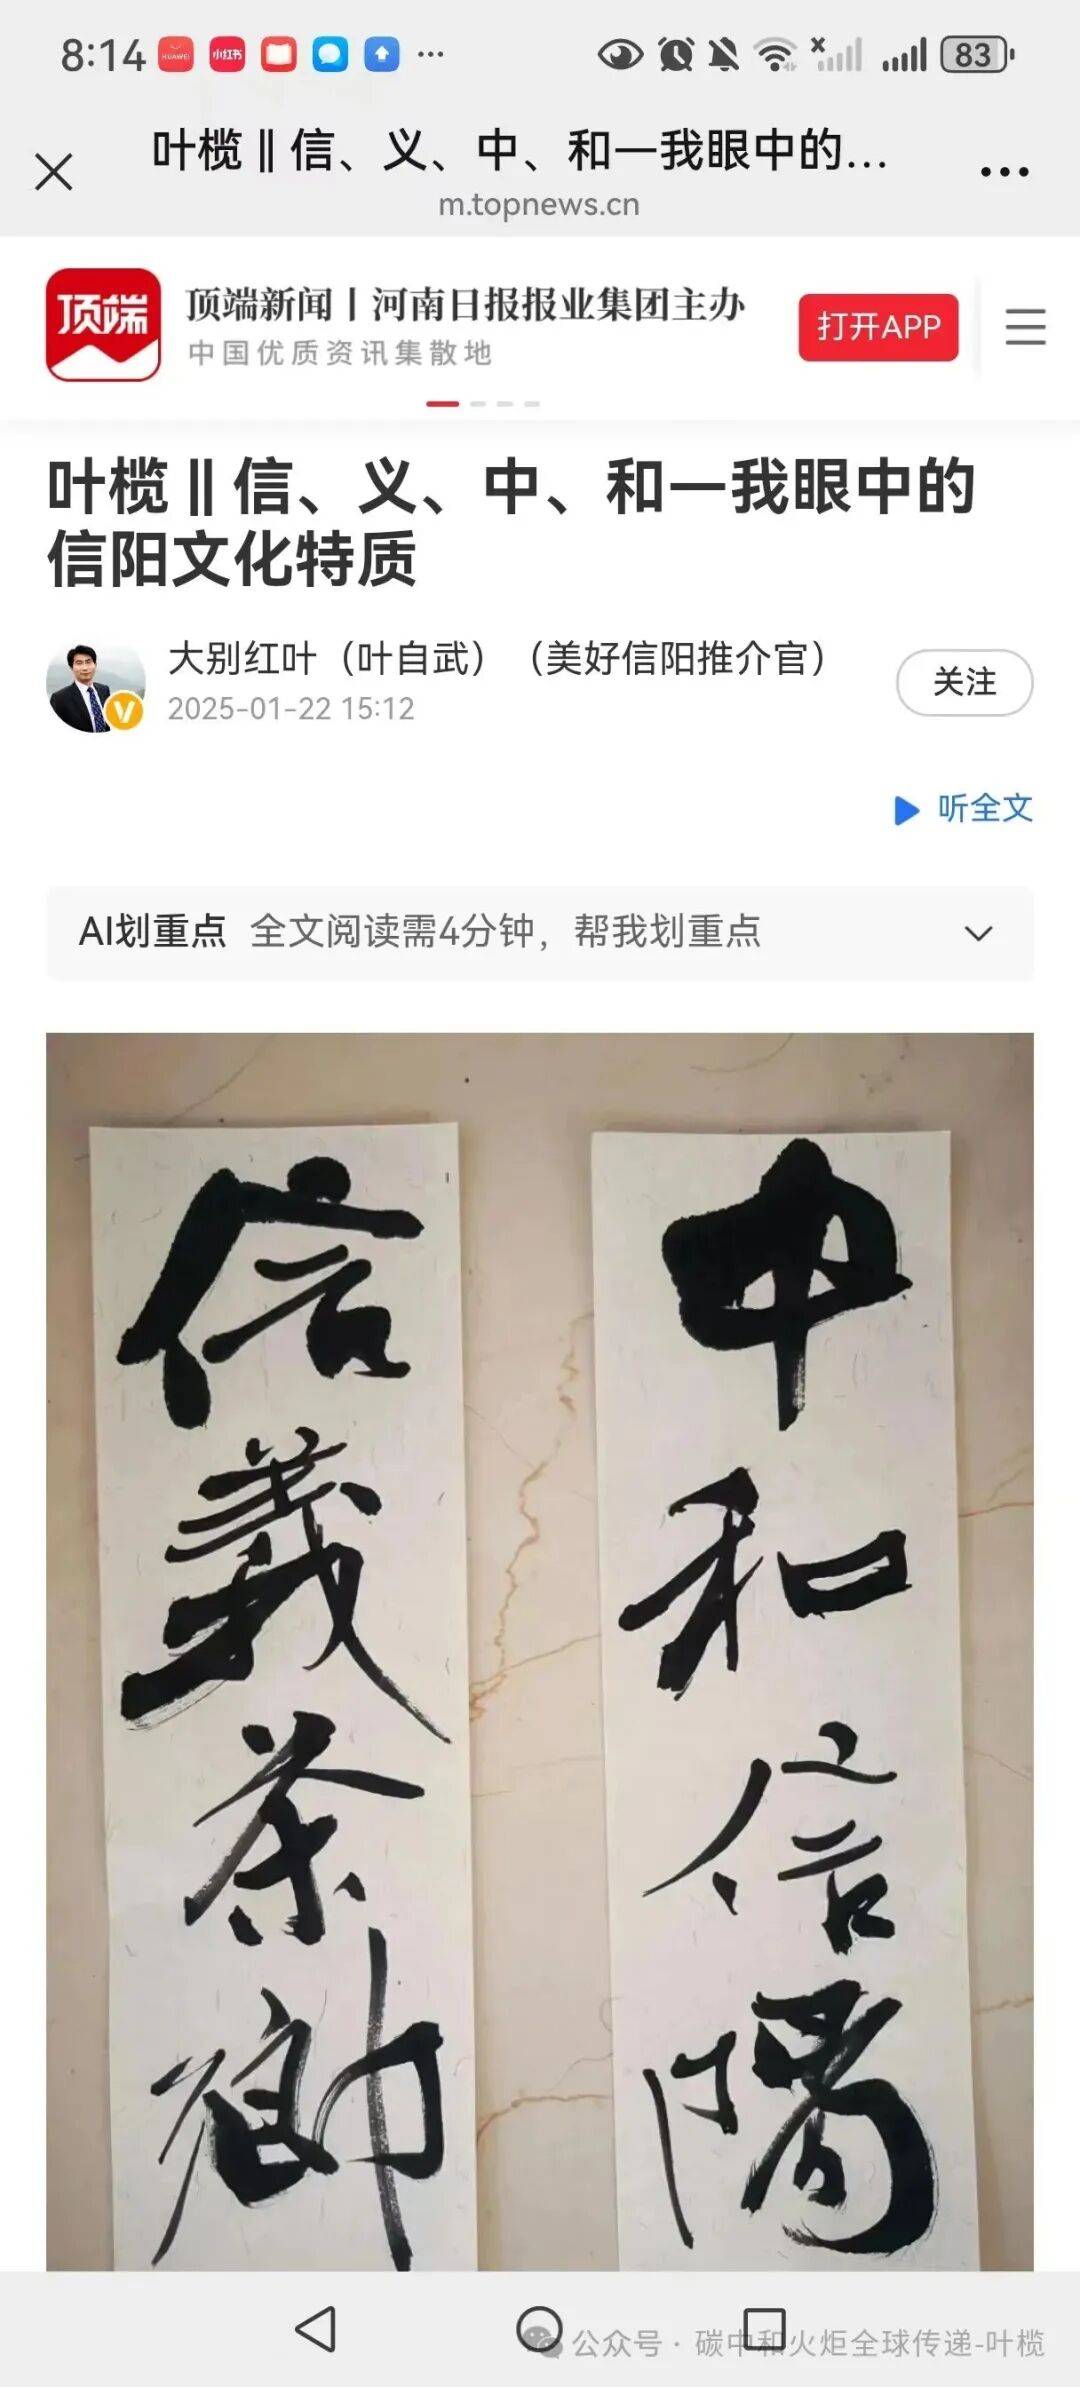 8:14 HUAWEI 小红书 83
叶榄‖信、义、中、和一我眼中的...
m.topnews.cn
顶端
顶端新闻丨河南日报报业集团主办
中国优质资讯集散地
打开APP
叶榄‖信、义、中、和一我眼中的
信阳文化特质
大别红叶（叶自武）（美好信阳推介官）
2025-01-22 15:12
关注
听全文
AI划重点 全文阅读需4分钟，帮我划重点
中和信陽
信義茶鄉
公众号·碳中和火炬全球传递-叶榄